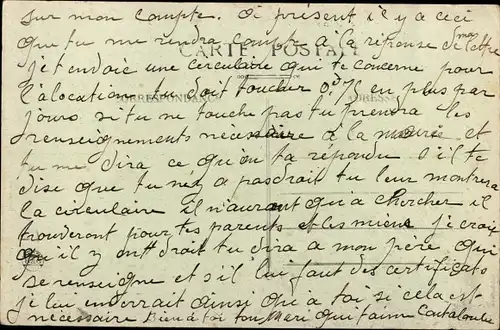 sur mon compte. Oi présent il y a ceci
que tu me rendra compte a la réponse de ma lettre
CARTE POSTALE
je t'endoie une circulaire qui te concerne pour
l'alocation tu doit toucher 0,75 en plus par
CORRESPONDANCE ADRESSE
jours si tu ne touche pas tu prendra les
renseignements nécessaire a la mairis et
tu me dira ce qu'on ta répondu s'il te
dise que tu n'ez a pas droit tu leur montrera
la circulaire il n'auront qu'a chercher il
trouveront pour tes parents et les miens je crois
qu'il y ont droit tu dira a mon père qui
se renseigne et s'il lui faut des certificats
je lui enverrait ainsi qu'a toi si cela est
nécessaire Bien a toi ton Mari qui t'aime